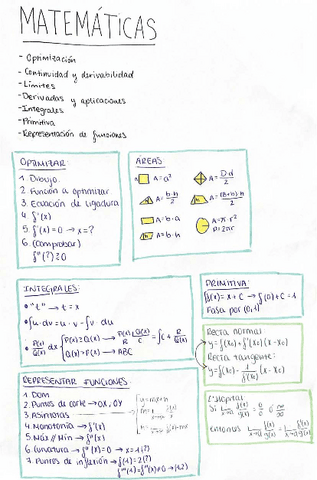 MATEMÁTICAS
- Optimización
- Continuidad y derivabilidad
- Límites
- Derivadas y aplicaciones
- Integrales
- Primitiva
- Representación de funciones
OPTIMIZAR
1. Dibujo
2. Función a optimizar
3. Ecuación de ligadura
4. f'(x)
5. f'(x)=0 → x=?
6. (Comprobar)
f''(?) ≥ 0
ÁREAS
A=a²
A=D·d/2
A=b·h/2
A=(B+b)·h/2
A=b·a
A=π·r²
P=2πr
A=b·h
INTEGRALES:
• "t" → t=x
• ∫u·dv=u·v-∫v·du
• ∫P(x)/Q(x) dx
P(x)≥Q(x) →
Q(x)>P(x) → ABC
PRIMITIVA:
Pasa por (0,1)
Recta normal:
Recta tangente:
REPRESENTAR FUNCIONES:
1. Dom
2. Puntos de corte → OX, OY
3. Asíntotas
y=mx+n
4. Monotonía → f'(x)
5. Máx // Mín → f'(x)
6. Curvatura → f''(x)=0 → x=?
7. Puntos de inflexión →
L'Hôpital
Si
entonces